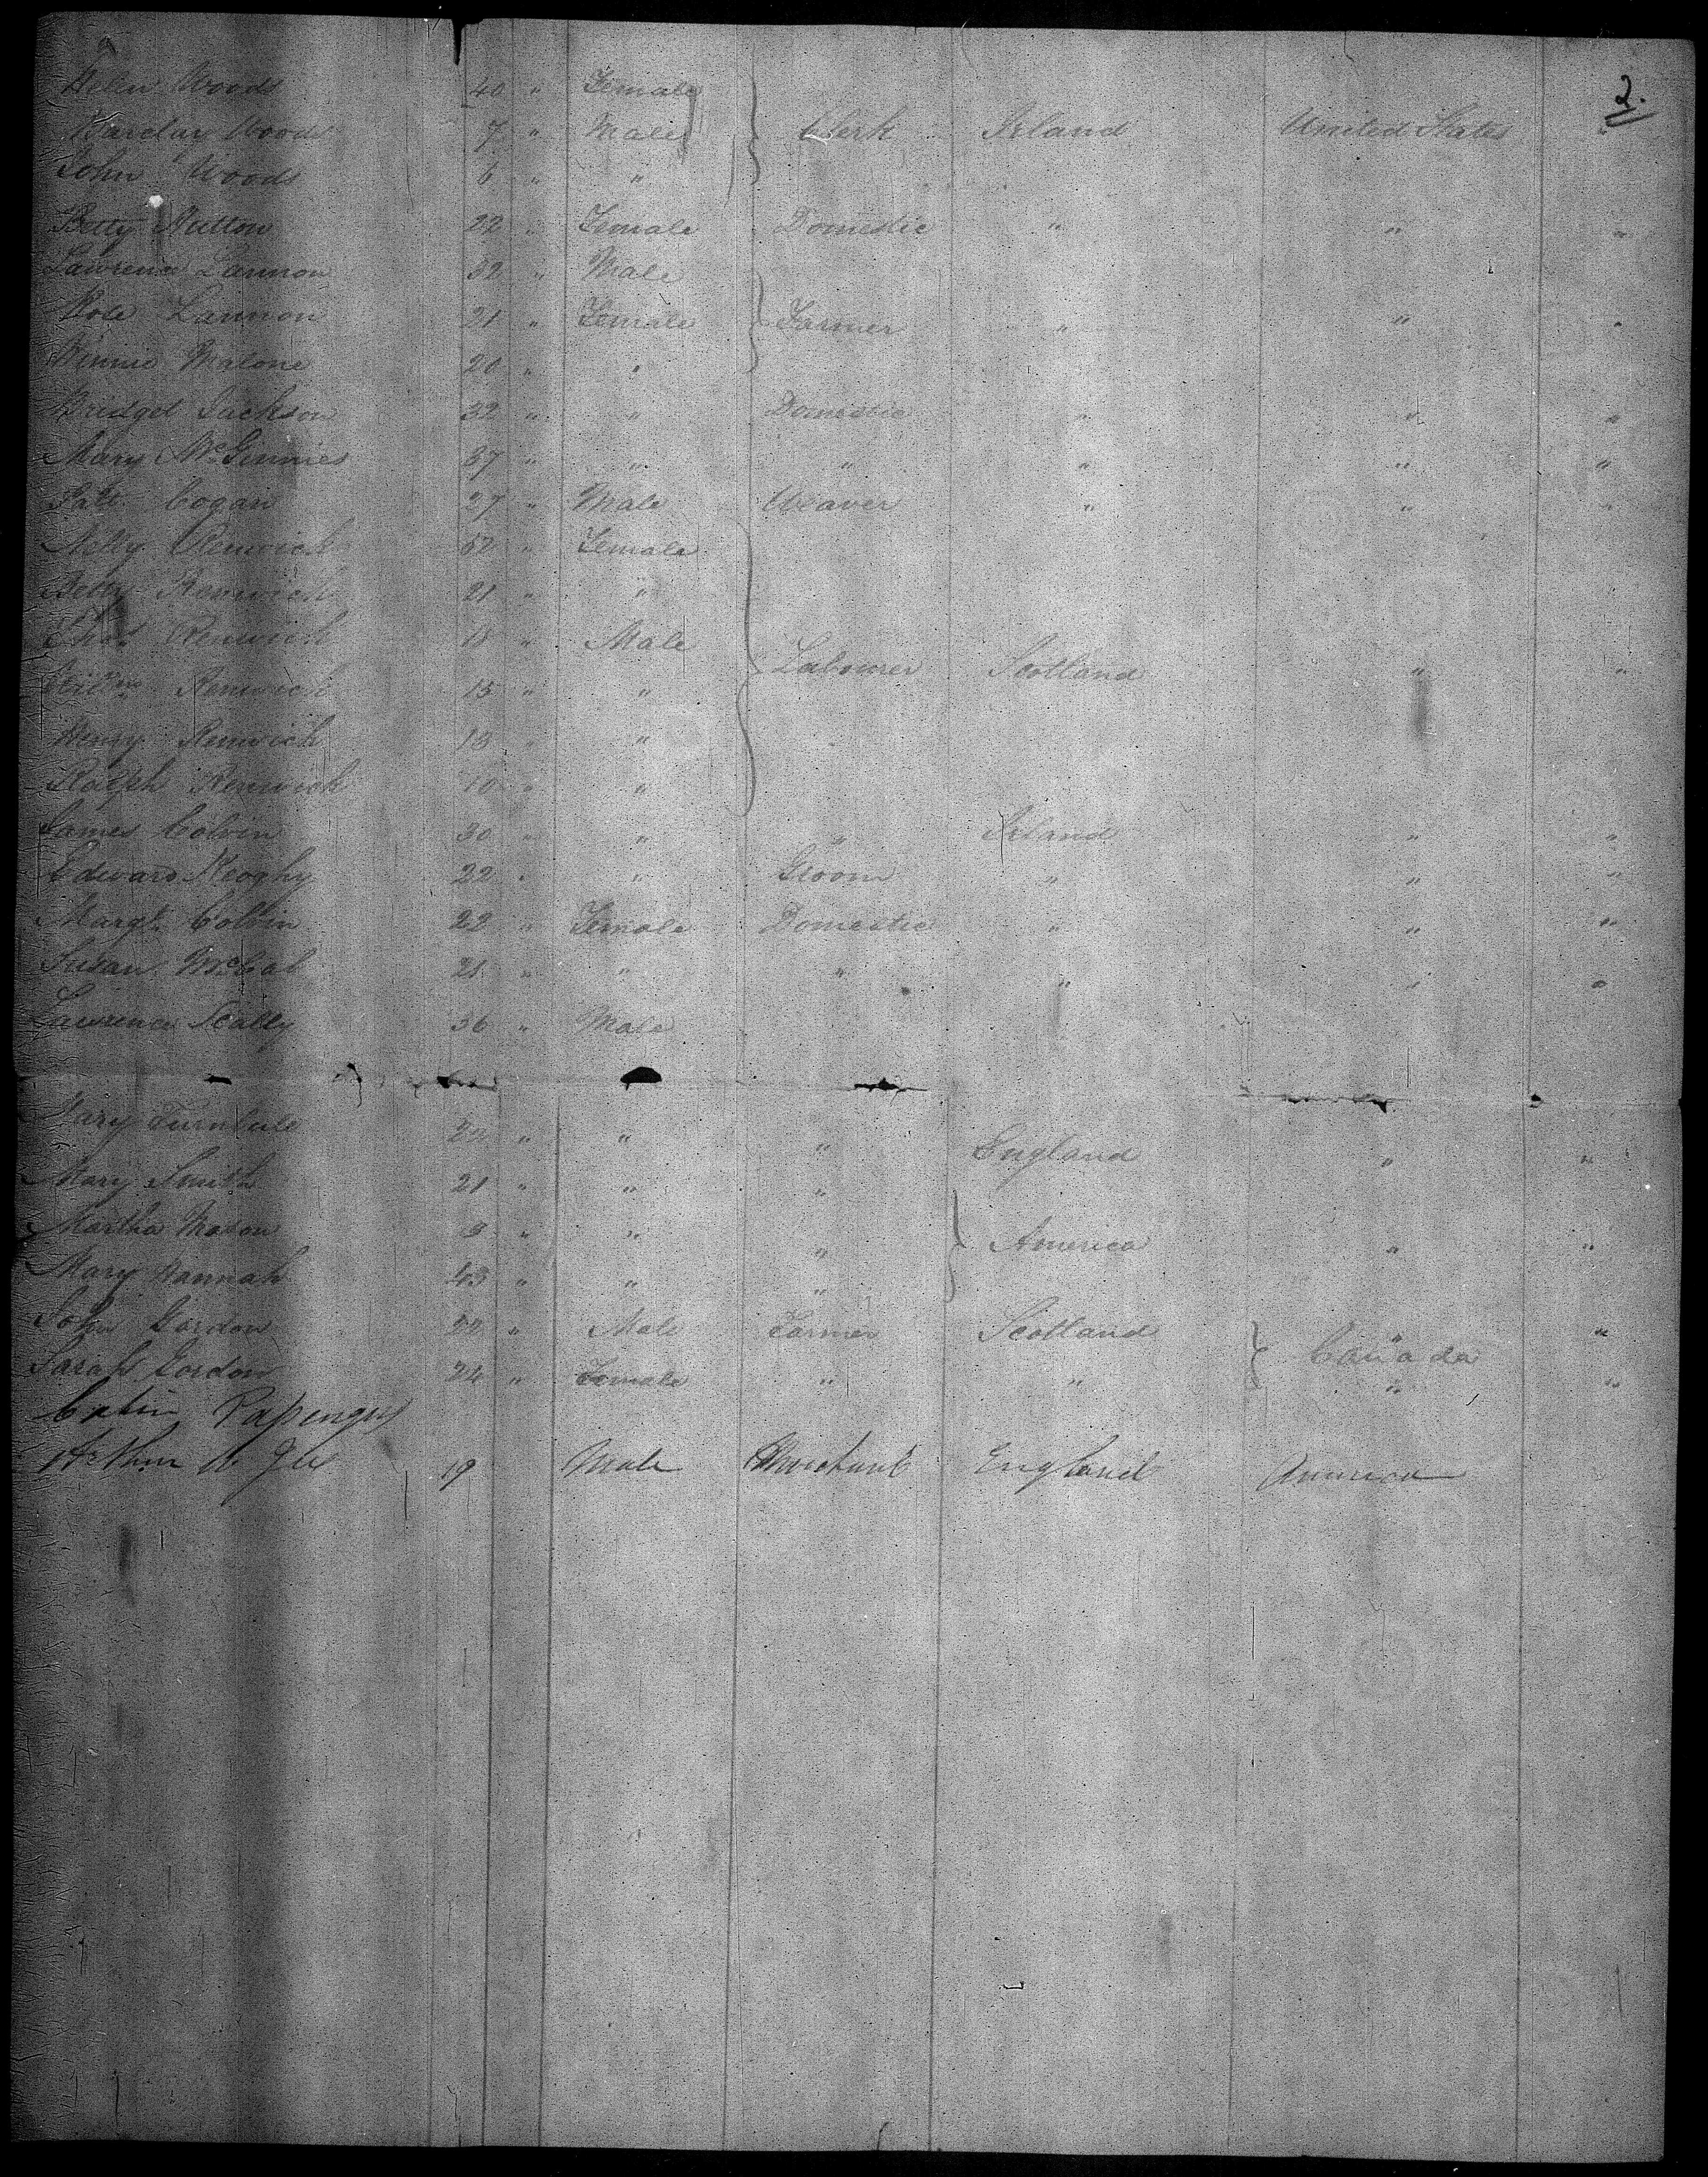 2.
Helen Woods 40 " Female
Barclay Woods 7 " Male } Clerk Irland United States "
John Woods 6 " "
Betty Hutton 22 " Female Domestic " " "
Lawrence Lannon 32 " Male
Rose Lannon 21 " Female } Farmer " " "
Winnie Malone 20 " "
Bridget Jackson 32 " " Domestic " " "
Mary McGinnies 37 " " " " " "
Patt Cogan 27 " Male Weaver " " "
Nelly Renwick 52 " Female
Betty Renwick 21 " "
Thos Renwick 18 " Male
} Labourer Scotland " "
Renwick 15 " "
Henry Renwick 13 " "
Ralph Renwick 10 " "
James Colvin 30 " " " Irland " "
Edward Keoghy 22 " " Groom " " "
Margt Colvin 22 " Female Domestic " " "
Susan McCal 21 " " " " " "
Lawrence Scally 36 " Male
Mary Turnbull 22 " " " England " "
Mary Smith 21 " " "
Martha Mason 9 " " " } America " "
Mary Hannah 43 " " "
John Gordon 22 " Male Farmer Scotland " "
} Canada
Sarah Gordon 24 " Female " " " "
Cabin Passengers
Arthur 19 Male Merchant England America